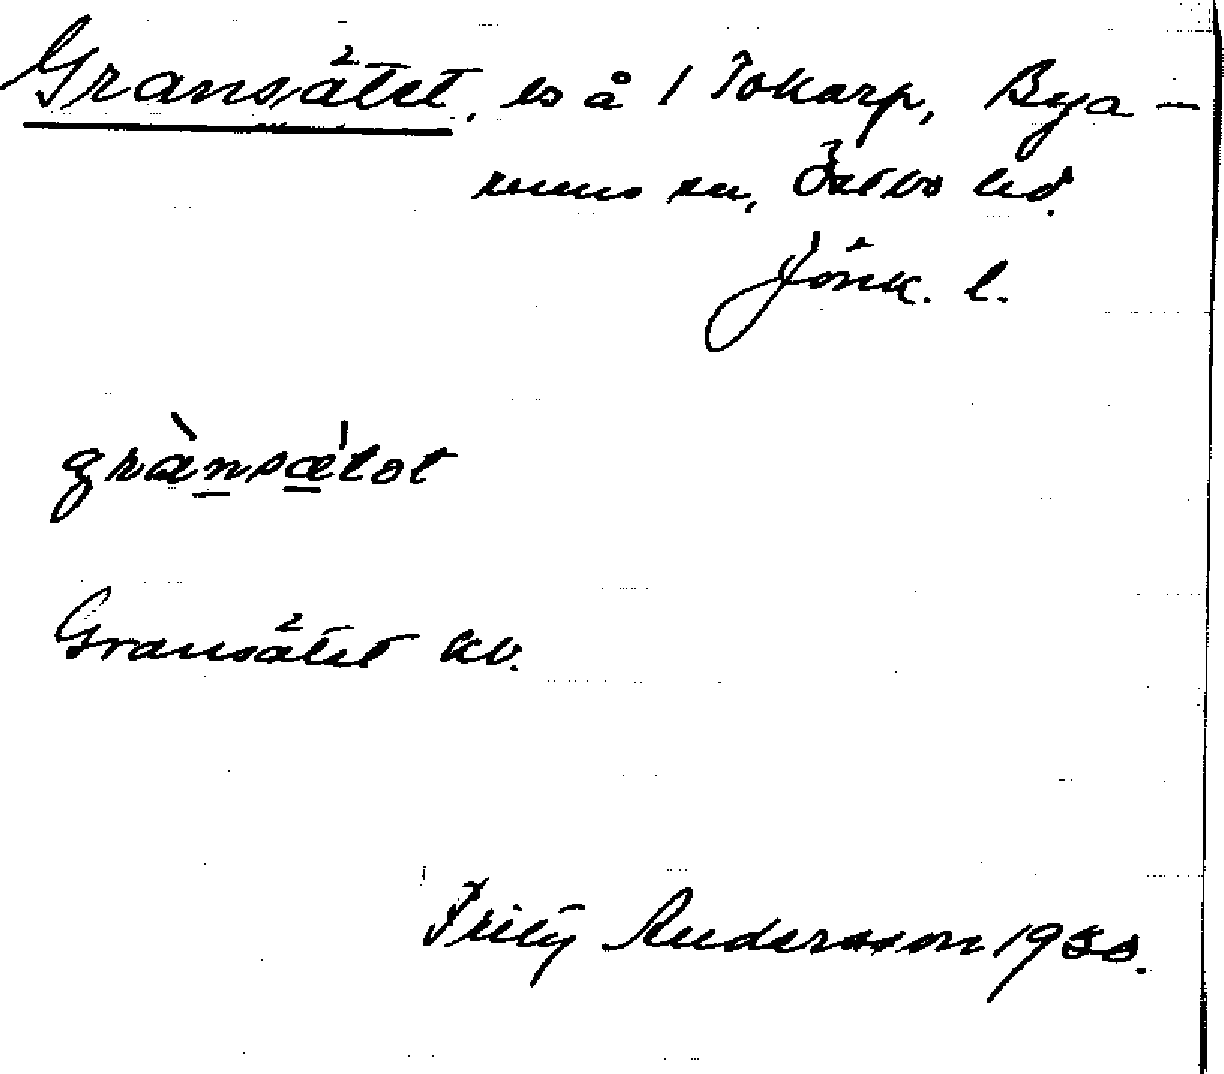 Gransätet, ls å 1 Tokarp, Bya-
rums sn, Östbo hd.
Jönk. l.
grànsǽtət
Gransätet kv.
Frity Andersson 1930.